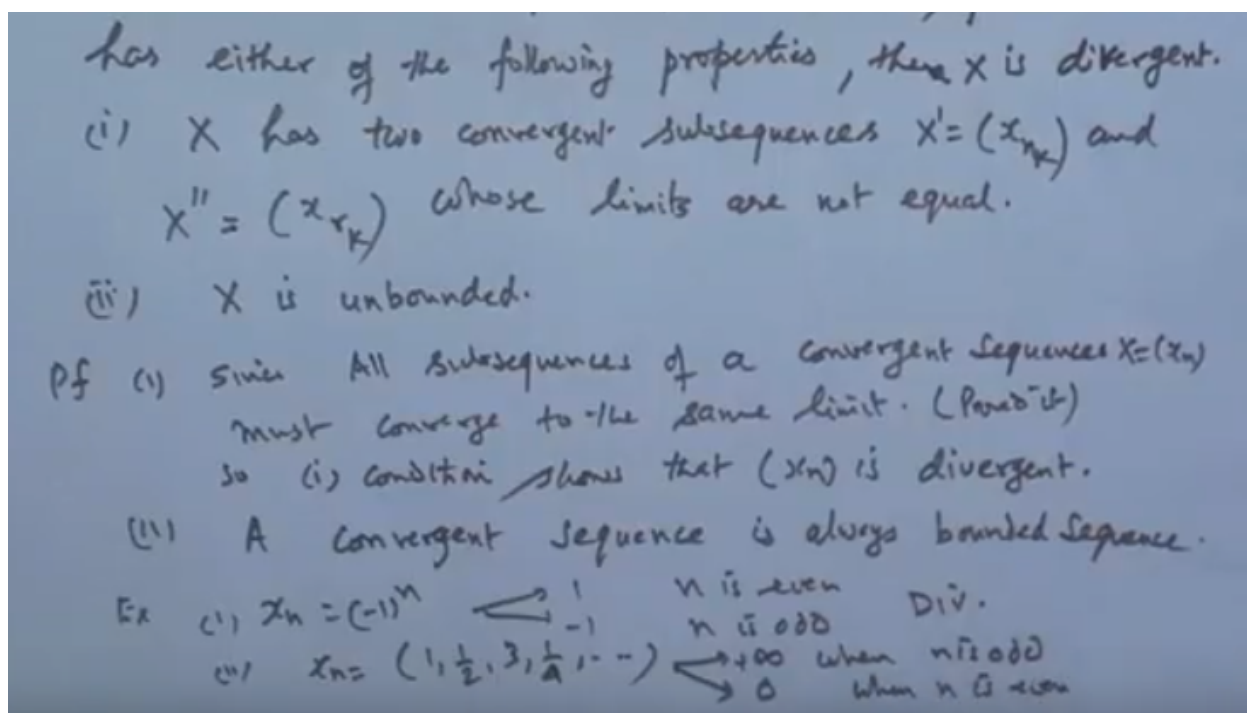 has either of the following properties, then X is divergent.
(i) X has two convergent subsequences X' = (x_{n_k}) and
X'' = (x_{r_k}) whose limits are not equal.
(ii) X is unbounded.
Pf (i) Since All subsequences of a convergent sequences X=(x_n)
must converge to the same limit.
So (i) condition shows that (x_n) is divergent.
(ii) A convergent sequence is always bounded sequence.
Ex (i) x_n = (-1)^n 1 n is even Div.
-1 n is odd
(ii) x_n = (1, 1/2, 3, 1/4, ...) +∞ when n is odd
0 when n is even